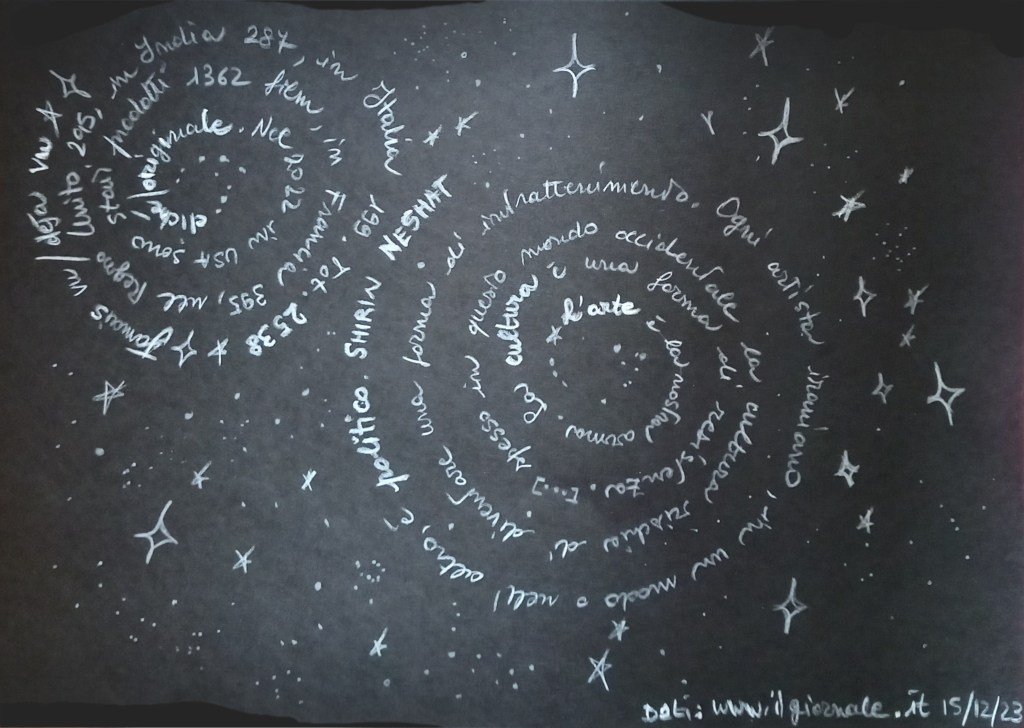 cliché/originale. Nel 2022 in USA sono stati prodotti 1362 film, in Francia 395, nel Regno Unito 295, in India 287, in Italia 199. Tot. 2538
jamais vu/déja vu
L'arte è la nostra arma
La cultura è una forma di resistenza. [...] spesso in questo mondo occidentale la cultura rischia di diventare una forma di intrattenimento. Ogni artista iraniano in un modo o nell'altro, è politico. SHIRIN NESHAT
Dati: www.ilgiornale.it 15/12/23